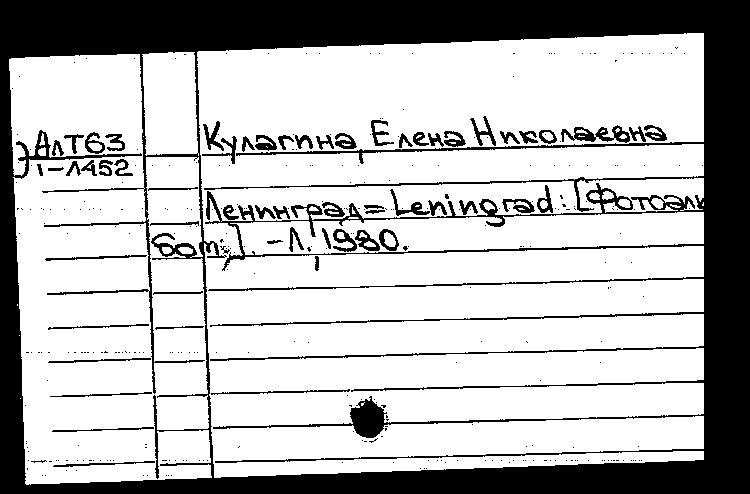 АлТ63
1-Л452
Кулагина, Елена Николаевна
Ленинград = Leningrad: [Фотоаль
бом]. - Л., 1980.